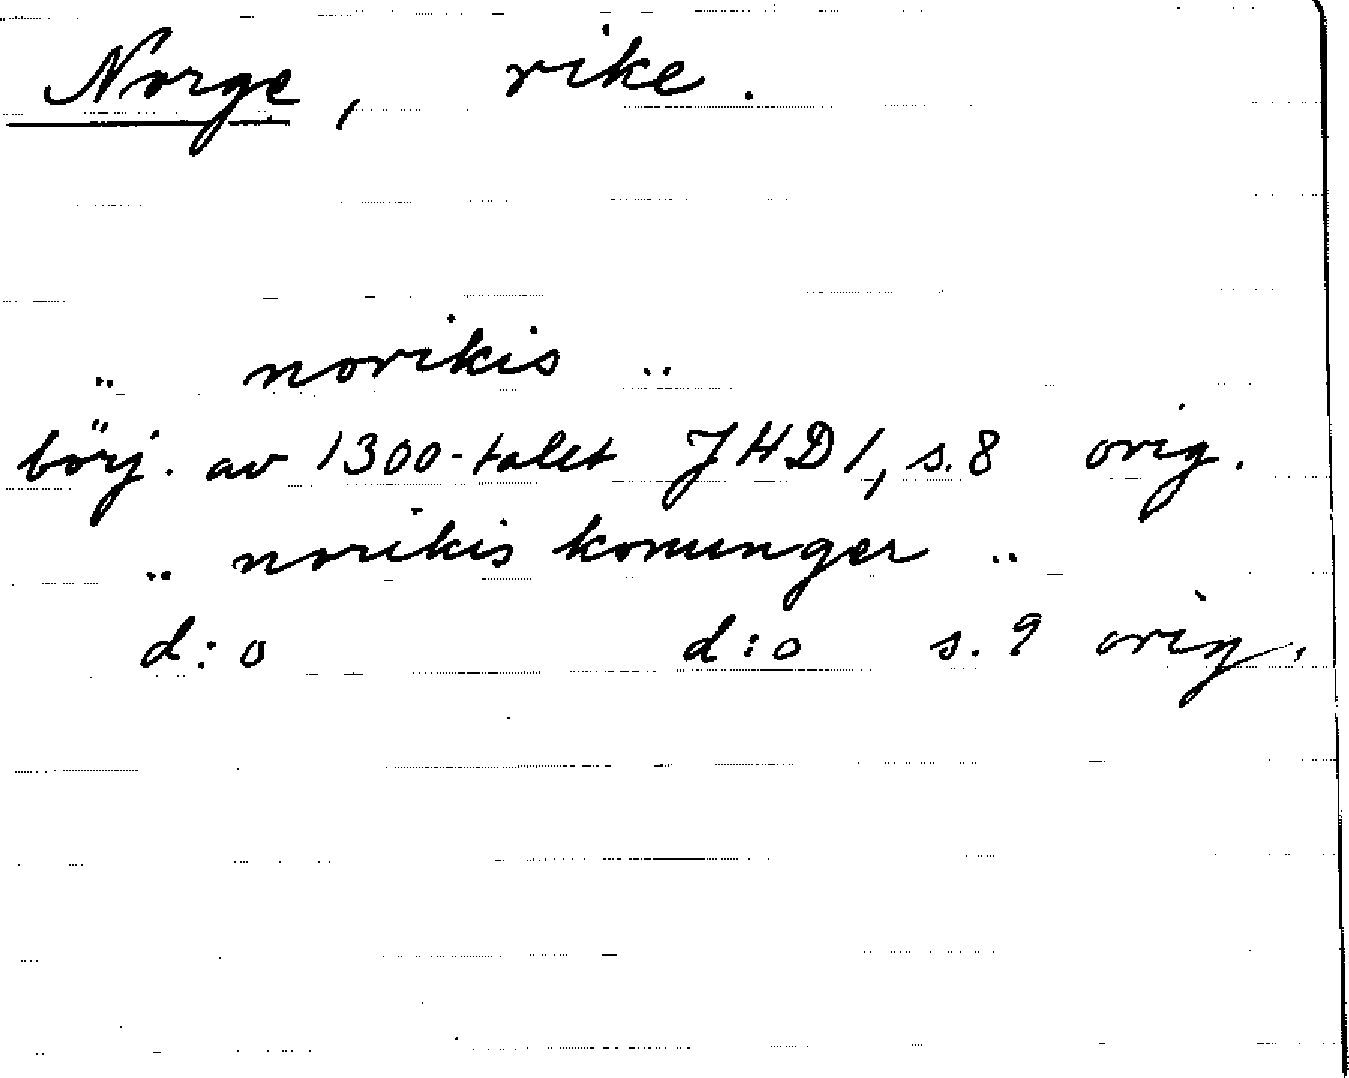 Norge, rike.
.. norikis ..
börj. av 1300-talet JHD 1, s. 8 orig.
.. norikis konunger ..
d:o d:o s. 9 orig.